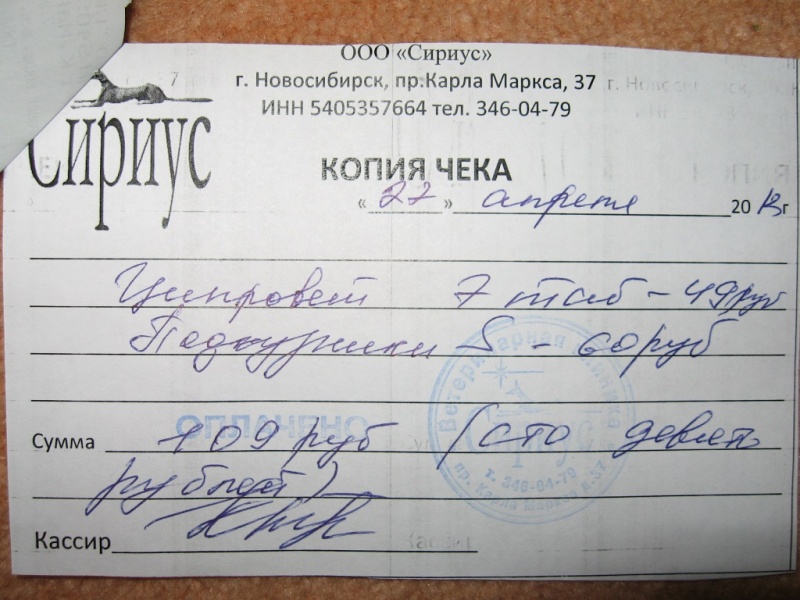 ООО «Сириус»
г. Новосибирск, пр.Карла Маркса, 37
ИНН 5405357664 тел. 346-04-79
Сириус
КОПИЯ ЧЕКА
« 27 » апреля 2013г
Ципровет 7 таб - 49 руб
Подгузники S - 60 руб
ОПЛАЧЕНО
Ветеринарная клиника
Сириус
т. 346-04-79
пр. Карла Маркса д.37
Сумма 109 руб (сто девять
рублей)
Кассир